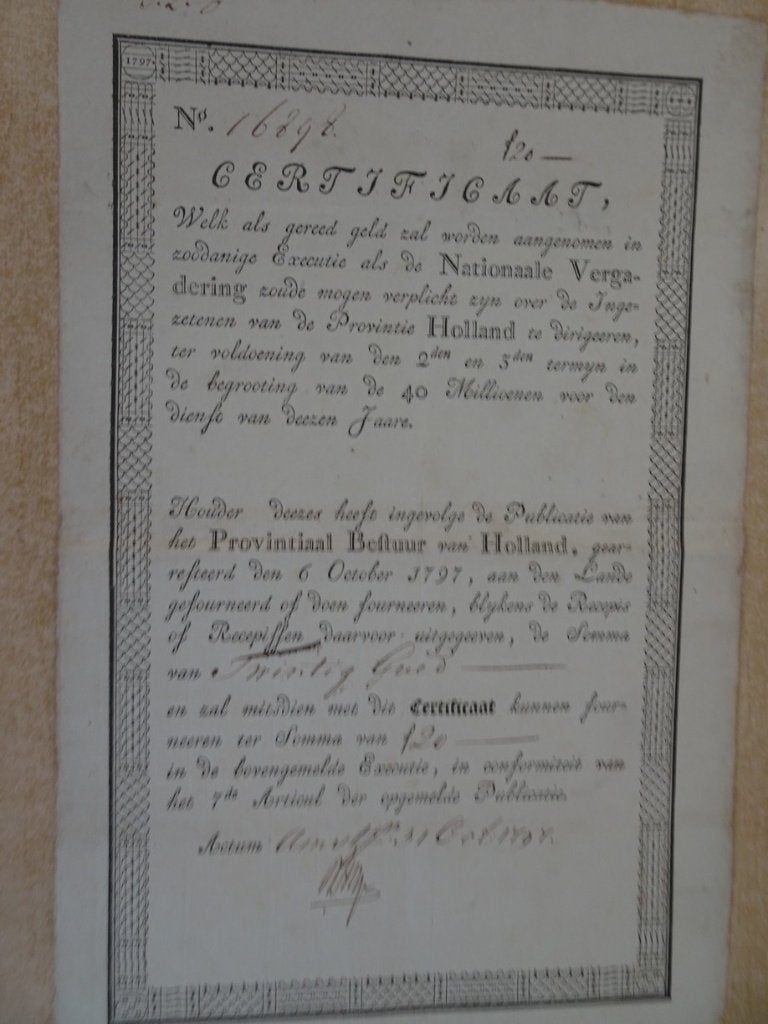 1797
Nº. 16898.
f20 —
CERTIFICAAT,
Welk als gereed geld zal worden aangenomen in
zoodanige Executie als de Nationaale Verga-
dering zoude mogen verplicht zyn over de Inge-
zetenen van de Provintie Holland te dirigeeren,
ter voldoening van den 2den en 3den termyn in
de begrooting van de 40 Millioenen voor den
dienst van deezen Jaare.
Houder deezes heeft ingevolge de Publicatie van
het Provintiaal Bestuur van Holland, gear-
resteerd den 6 October 1797, aan den Lande
gefourneerd of doen fourneeren, blykens de Recepis
of Recepissen daarvoor uitgegeeven, de Somma
van Twintig Guld —
en zal mitsdien met dit Certificaat kunnen four-
neeren ter Somma van f20 —
in de bovengemelde Executie, in conformiteit van
het 7de Articul der opgemelde Publicatie.
Actum Amst 31 Oct. 1797.